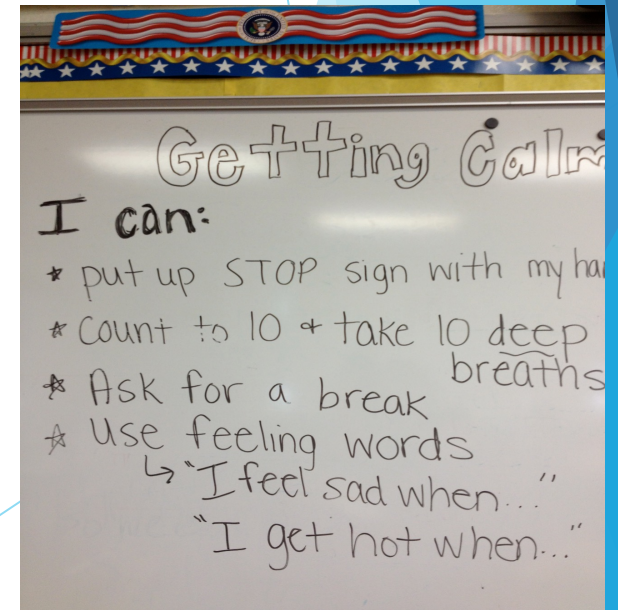 Getting Calm
I can:
* put up STOP sign with my ha
* Count to 10 & take 10 deep
breaths
* Ask for a break
* Use feeling words
↳ "I feel sad when..."
"I get hot when..."